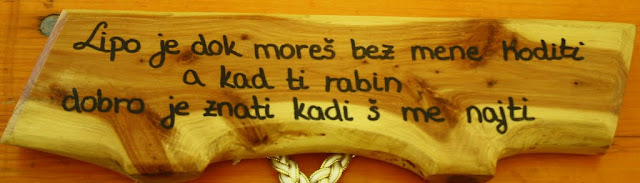 Lipo je dok moreš bez mene hoditi
a kad ti rabin
dobro je znati kadi š me najti